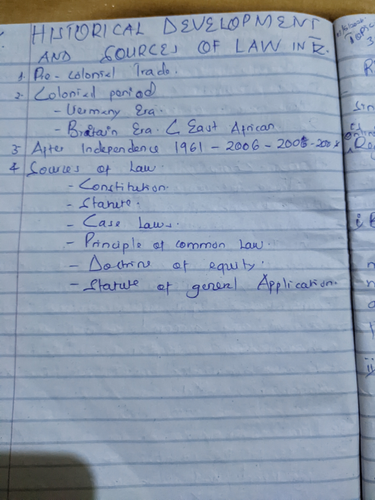 HISTORICAL DEVELOPMENT
AND SOURCES OF LAW IN
1. Pre-colonial Trade.
2. Colonial period
- Germany Era.
- Britain Era. East African.
3 After Independence 1961 - 2006 -
4 Sources of Law.
- Constitution.
- Statute.
- Case Laws.
- Principle of common Law.
- Doctrine of equity.
- Statute of general Application.